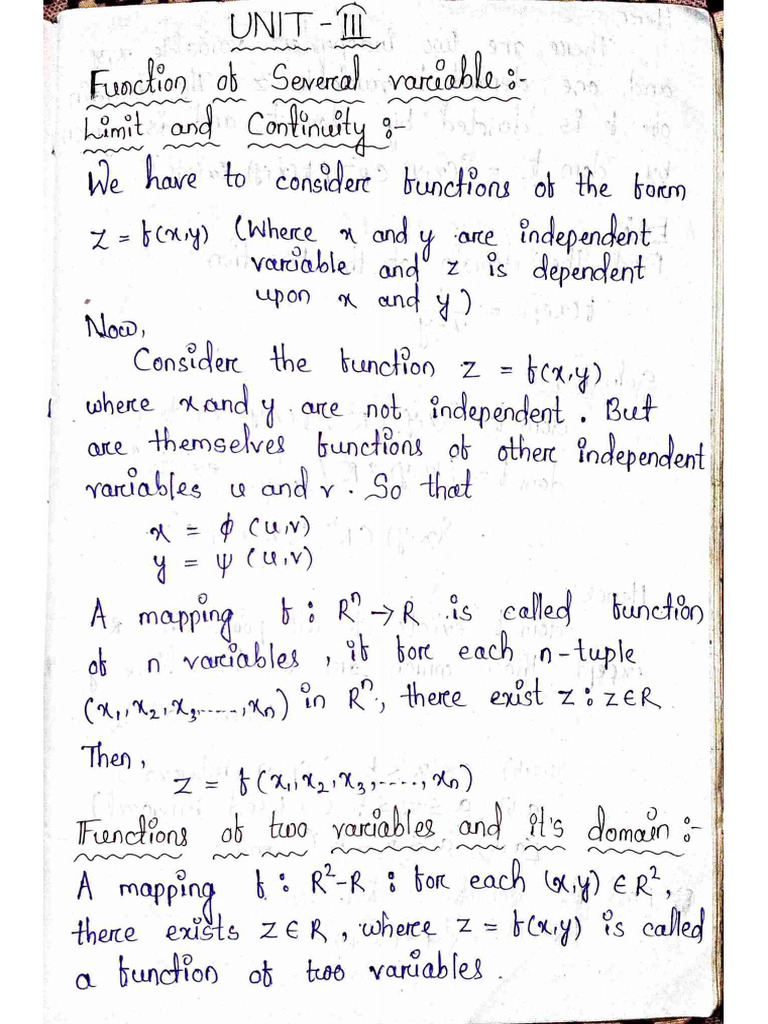 UNIT - III
Function of Several variable:-
Limit and Continuity :-
We have to consider functions of the form
z = f(x,y) (Where x and y are independent
variable and z is dependent
upon x and y)
Now,
Consider the function z = f(x,y)
where x and y are not independent. But
are themselves functions of other independent
variables u and v. So that
x = ϕ (u,v)
y = ψ (u,v)
A mapping f : Rⁿ → R is called function
of n variables, if for each n-tuple
(x₁, x₂, x₃, ....., xₙ) in Rⁿ, there exist z : z ∈ R
Then,
z = f(x₁, x₂, x₃, ....., xₙ)
Functions of two variables and it's domain :-
A mapping f : R² - R : for each (x,y) ∈ R²,
there exists z ∈ R, where z = f(x,y) is called
a function of two variables.